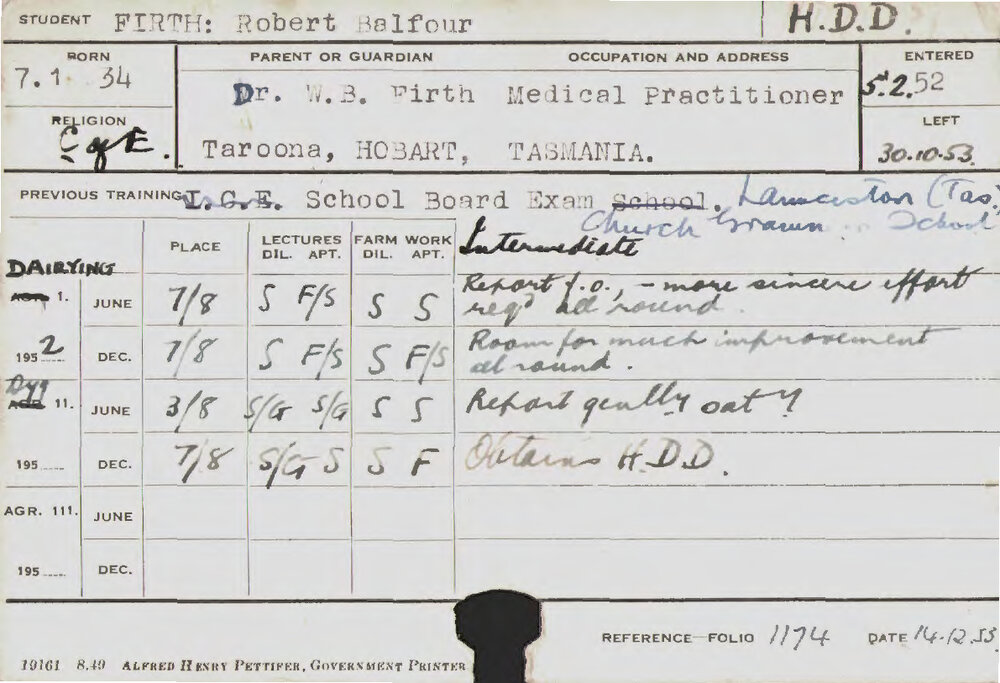 STUDENT FIRTH: Robert Balfour H.D.D.
BORN PARENT OR GUARDIAN OCCUPATION AND ADDRESS ENTERED
7.1 34 Dr. W.B. Firth Medical Practitioner 5.2.52
RELIGION LEFT
C of E. Taroona, HOBART, TASMANIA. 30.10.53
PREVIOUS TRAINING I.C.E. School Board Exam School. Launceston (Tas)
Church Gramm School
Intermediate
PLACE LECTURES FARM WORK
DIL. APT. DIL. APT.
DAIRYING
AGR. 1. JUNE 7/8 S F/S S S Report f.o., - more sincere effort
req'd all round.
1952 DEC. 7/8 S F/S S F/S Room for much improvement
all round.
Dyg
AGR 11. JUNE 3/8 S/G S/G S S Report gen'lly
195 DEC. 7/8 S/G S S F Obtains H.D.D.
AGR. 111. JUNE
195 DEC.
REFERENCE—FOLIO 1174 DATE 14.12.53
19161 8.49 ALFRED HENRY PETTIFER, GOVERNMENT PRINTER